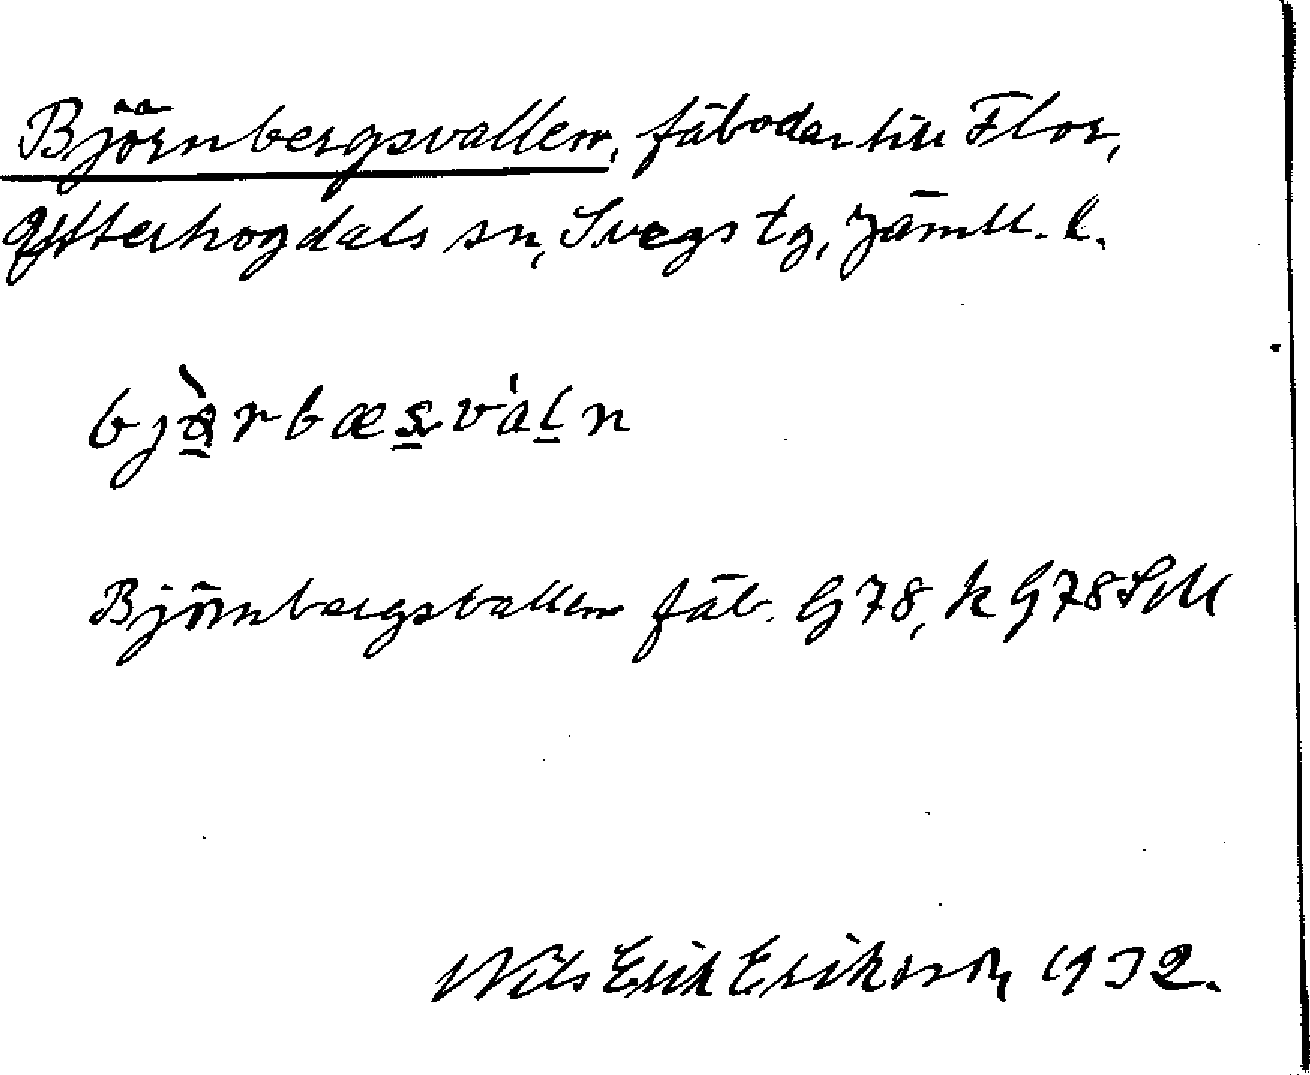 Björnbergsvallen, fäbodar till Flor,
Ytterhogdals sn, Svegs tg, Jämtl. l.
Björnbergsvallen fäb. G 78, k G 78 SM
Nils Erik Erikson, 1932.